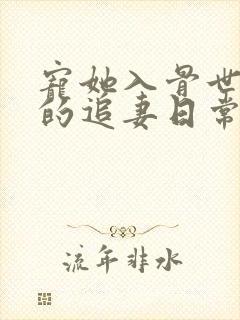 宠她入骨世
的追妻日常
流年非水